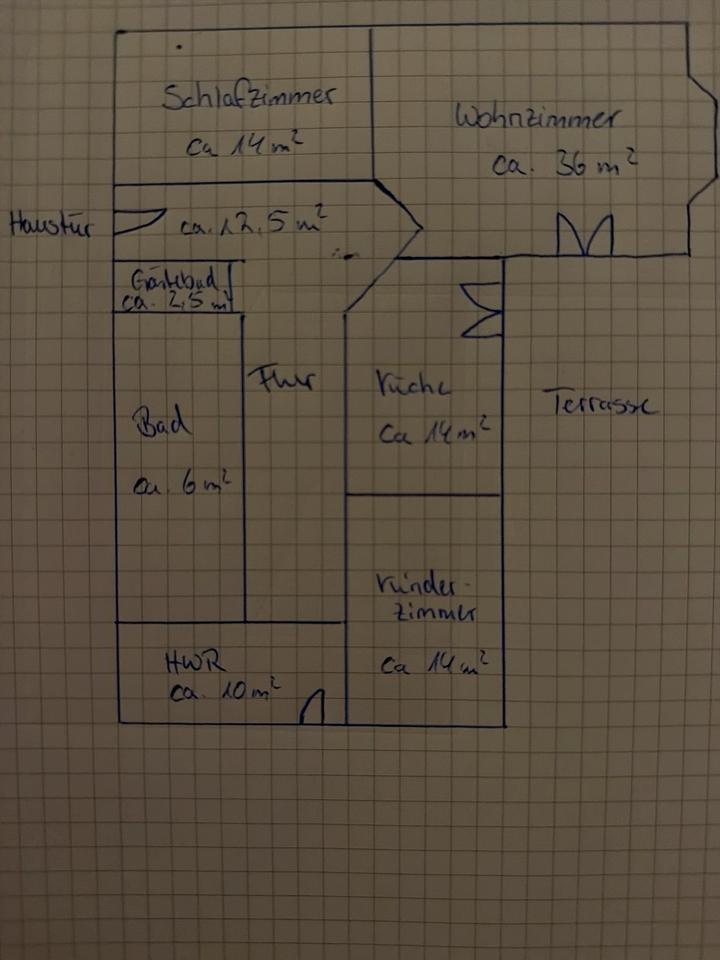 Schlafzimmer
ca 14 m²
Wohnzimmer
ca. 36 m²
Haustür
ca. 12,5 m²
Gästebad
ca. 2,5 m²
Flur
Küche
Ca 14 m²
Terrasse
Bad
ca. 6 m²
Kinder-
zimmer
ca 14 m²
HWR
ca. 10 m²